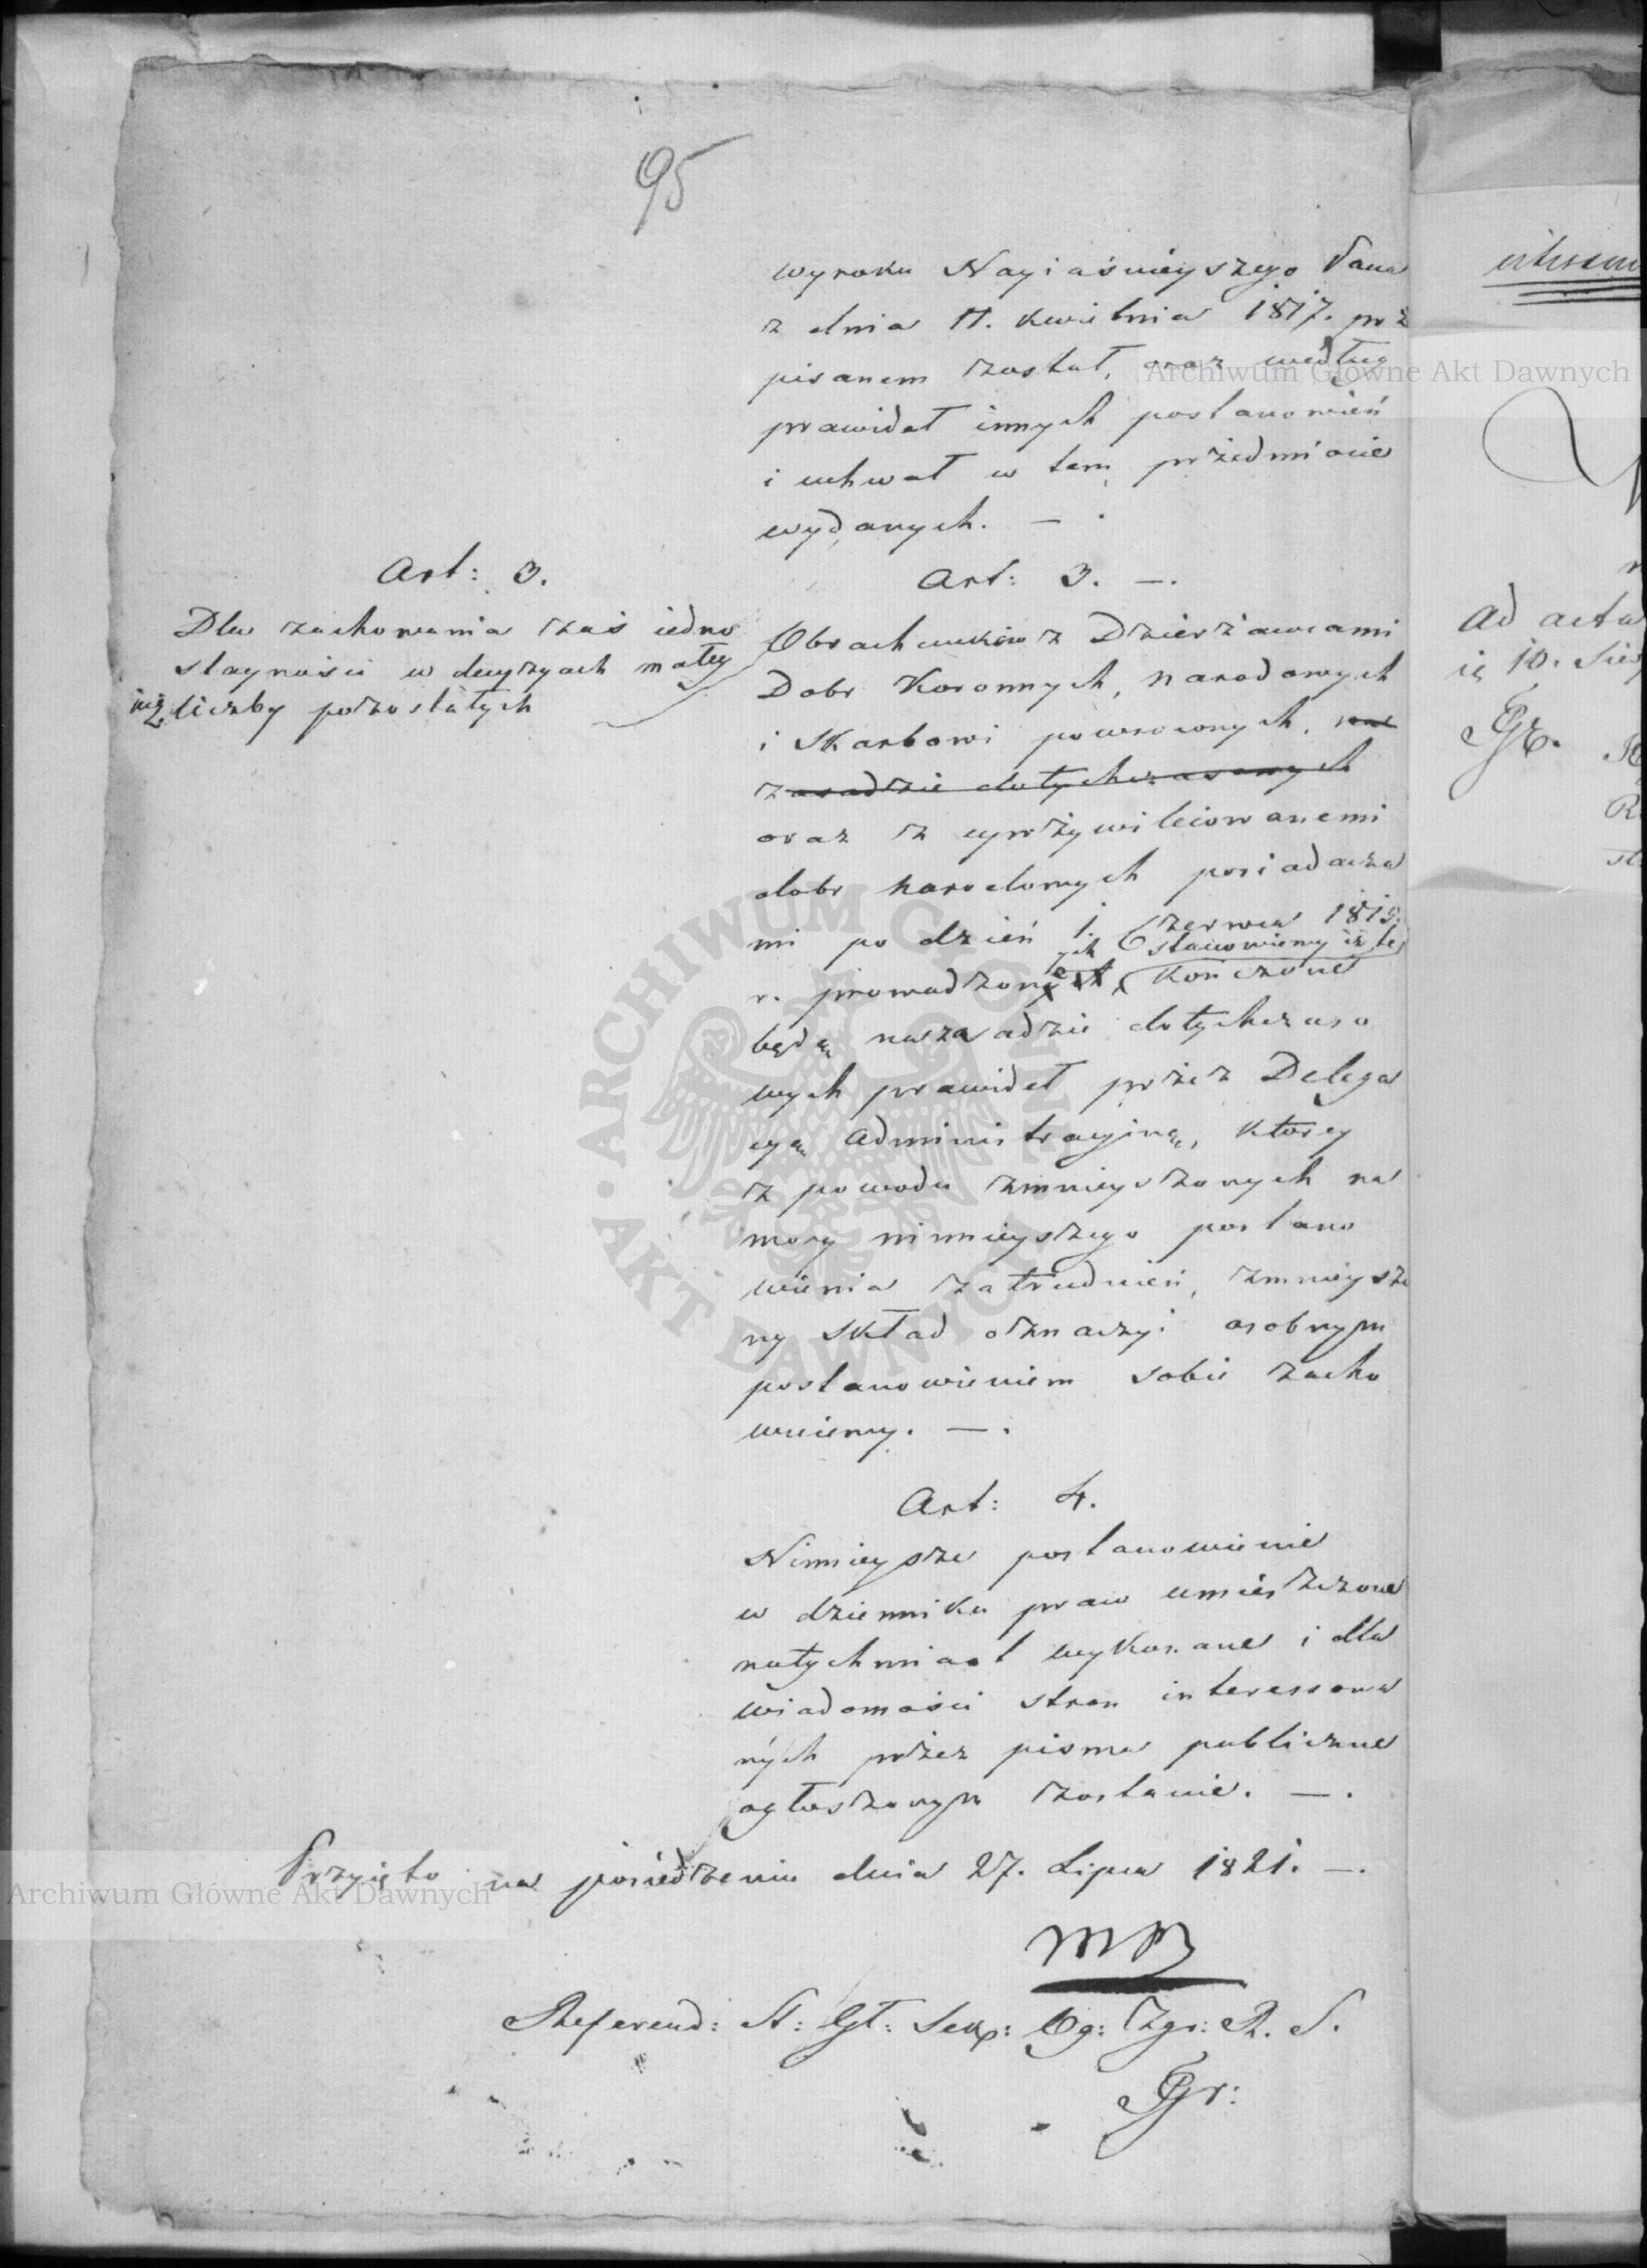 95
wyroku Nayiaśnieyszego Pana
z dnia 17. Kwietnia 1817. prze
pisanem został, oraz według
prawideł innych postanowień
i uchwał w tem przedmiocie
wydanych. —
Art: 3.
Dla zachowania zaś iedno
staynosci w decyzyach małey
iuż liczby pozostałych
Art: 3. —.
Obrachunków z Dzierżawcami
Dobr Koronnych, narodowych
i Skarbowi powroconych, na
zasadzie dotychczasowych
oraz z uprzywileiowanemi
dobr narodowych posiadacza
mi po dzień 1. Czerwca 1819.
ych stanowiemy iż te
r. prowadzone, Kończone
będą na zasadzie dotychczaso
wych prawideł przez Delega
cyą Administracyiną, ktorey
z powodu zmnieyszonych na
mocy ninieyszego postano
wienia zatrudnień, zmnieyszo
ny skład oznaczyć osobnym
postanowieniem sobie zacho
wuiemy. —.
Art: 4.
Ninieysze postanowienie
w dzienniku praw umieszczone
natychmiast wykonane i dla
wiadomości stron interessowa
nych przez pisma publiczne
ogłoszonym zostanie. —.
Przyięto na posiedzeniu dnia 27. Lipca 1821. —.
Referend: St: Gł: Sekr: Og: Zgr: R. S.
Gr:
Ad acta
10.
Archiwum Główne Akt Dawnych
Archiwum Główne Akt Dawnych
ARCHIWUM GŁÓWNE AKT DAWNYCH